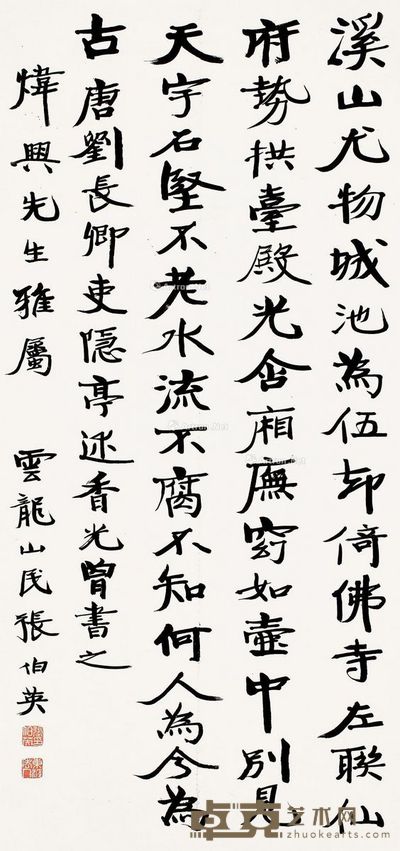 溪山尤物城池為伍却倚佛寺左聯仙
府勢拱臺殿光含廂廡窈如壺中別見
天宇石堅不老水流不腐不知何人為今為
古唐劉長卿吏隱亭述香光曾書之
煒興先生雅屬
雲龍山民張伯英
卓克艺术网
www.zhuokearts.com